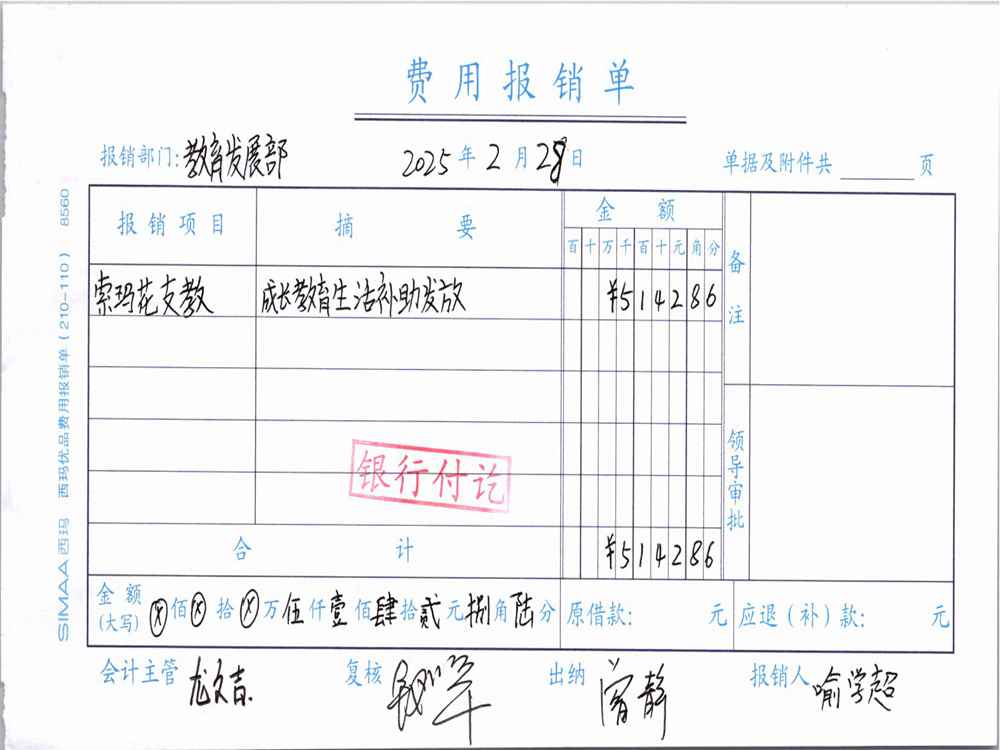 费用报销单
报销部门:教育发展部 2025年2月28日 单据及附件共 页
报销项目 摘要 金额 备注
百十万千百十元角分
索玛花支教 成长教育生活补助发放 ¥514286
银行付讫
领导审批
合计 ¥514286
金额(大写) ⊗佰⊗拾⊗万伍仟壹佰肆拾贰元捌角陆分 原借款: 元 应退(补)款: 元
会计主管 龙文吉 复核 出纳 曾静 报销人 喻学超
SIMAA 西玛 西玛优品费用报销单(210-110) 8560